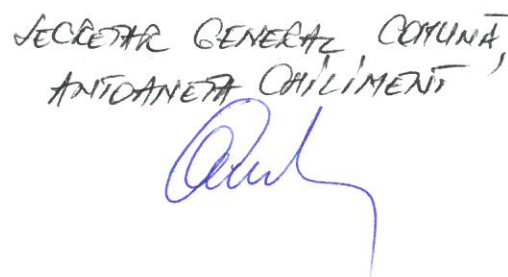 SECRETAR GENERAL COMUNĂ,
ANTOANETA CHILIMENT